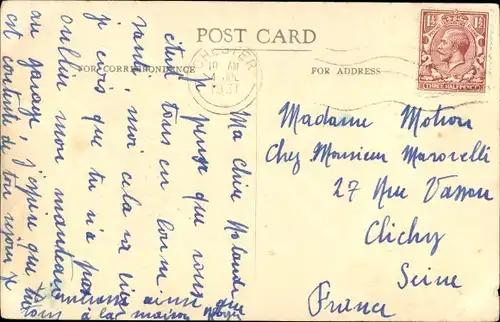 POST CARD
FOR CORRESPONDENCE
FOR ADDRESS
CHESTER
10 AM
4 JUL
1931
1½ 1½
THREE HALFPENCE
Madame Motron
Chez Monsieur Marovelli
27 Rue Vassou
Clichy
Seine
France
Ma chère Rolande
je pense que vous
êtes tous en bonne
santé, moi cela va bien
je crois que tu n'a pas
oublier mon manteau
au garage, j'espère que tu
est contente de ton séjour je
embrasse ainsi que
tous à la maison